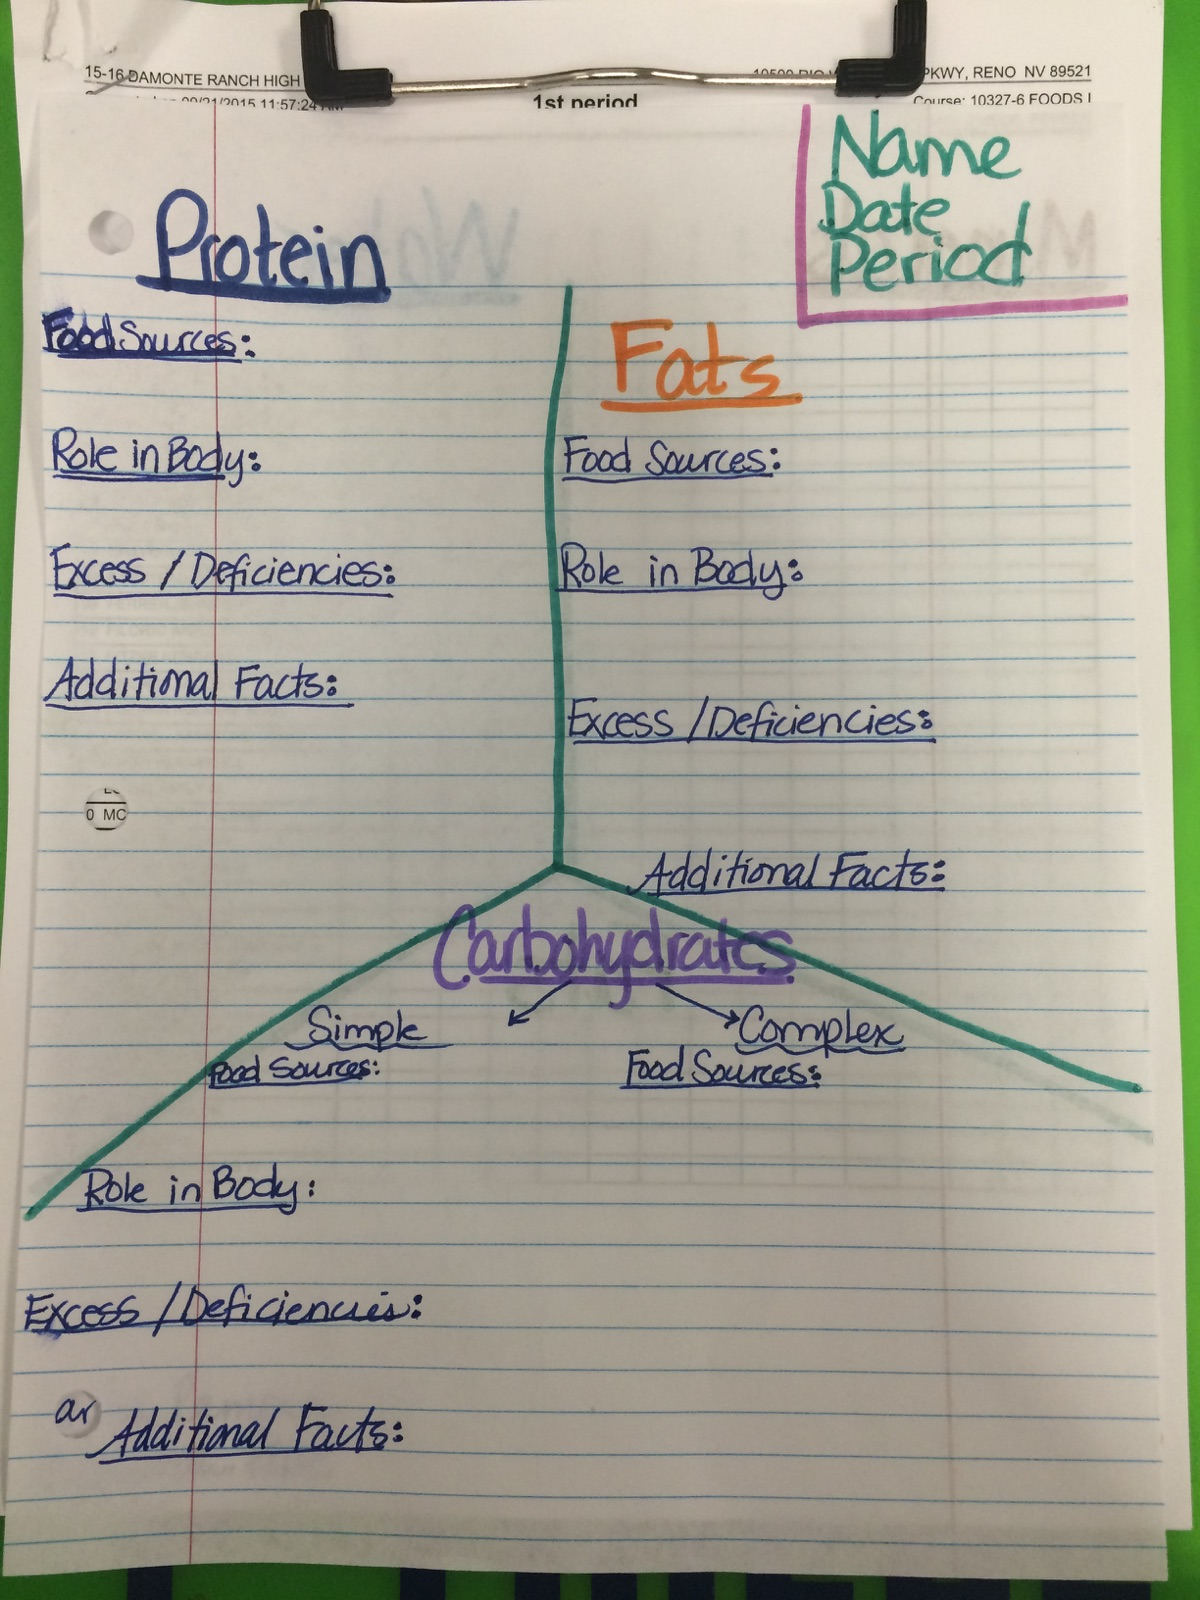 15-16 DAMONTE RANCH HIGH
PKWY, RENO NV 89521
09/21/2015 11:57:24 AM
1st period
Course: 10327-6 FOODS I
Name
Date
Period
Protein
Food Sources:
Role in Body:
Excess / Deficiencies:
Additional Facts:
0 MC
Fats
Food Sources:
Role in Body:
Excess / Deficiencies:
Additional Facts:
Carbohydrates
Simple
Food Sources:
Complex
Food Sources:
Role in Body:
Excess / Deficiencies:
ar
Additional Facts: